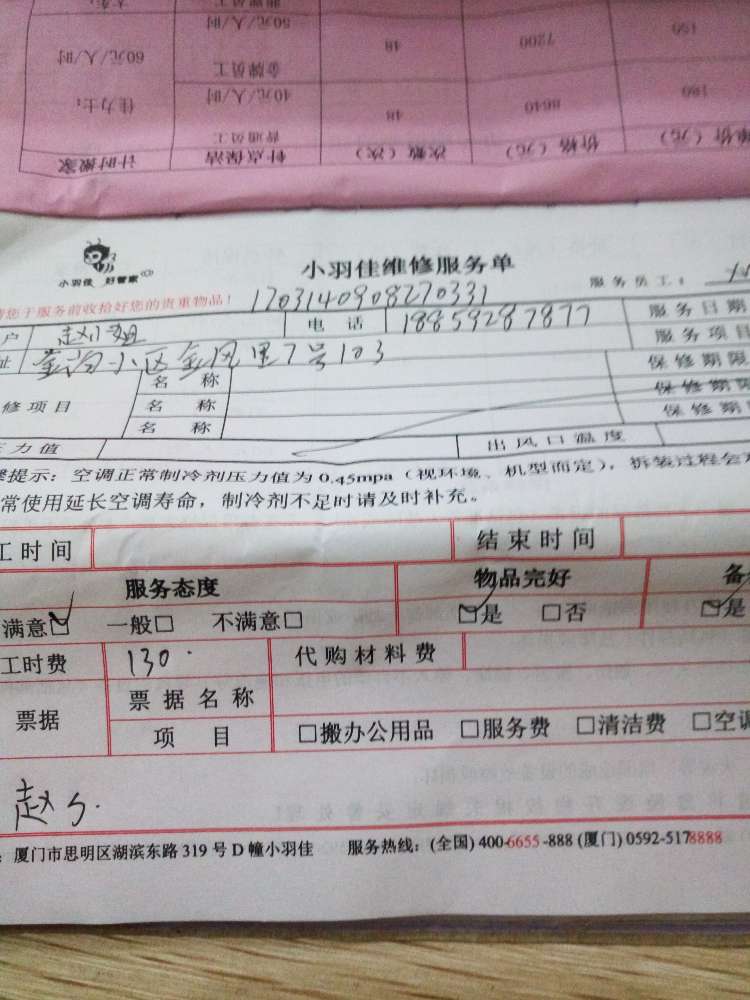 大车：
金牌员工
50元/人/时
60元/人/时
48
7200
150
佳力士：
普通员工
40元/人/时
48
8640
180
计时搬家
针点保洁
次数（次）
价格（元）
单价（元）
小羽佳 好管家
小羽佳维修服务单
服务员工：
您于服务前收拾好您的贵重物品！
1703140908270331
户 赵小姐 电话 18859287877 服务日期
址 金尚小区金凤里7号103 服务项目
修项目 名称 保修期限
名称 保修期限
名称 保修期
力值 出风口温度
提示：空调正常制冷剂压力值为 0.45mpa（视环境、机型而定），拆装过程会
常使用延长空调寿命，制冷剂不足时请及时补充。
工时间 结束时间
服务态度 物品完好 备
满意☑ 一般□ 不满意□ ☑是 □否 ☑是
工时费 130. 代购材料费
票据 票据名称
项目 □搬办公用品 □服务费 □清洁费 □空调
赵
：厦门市思明区湖滨东路 319 号 D 幢小羽佳 服务热线：(全国) 400-6655-888 (厦门) 0592-5178888